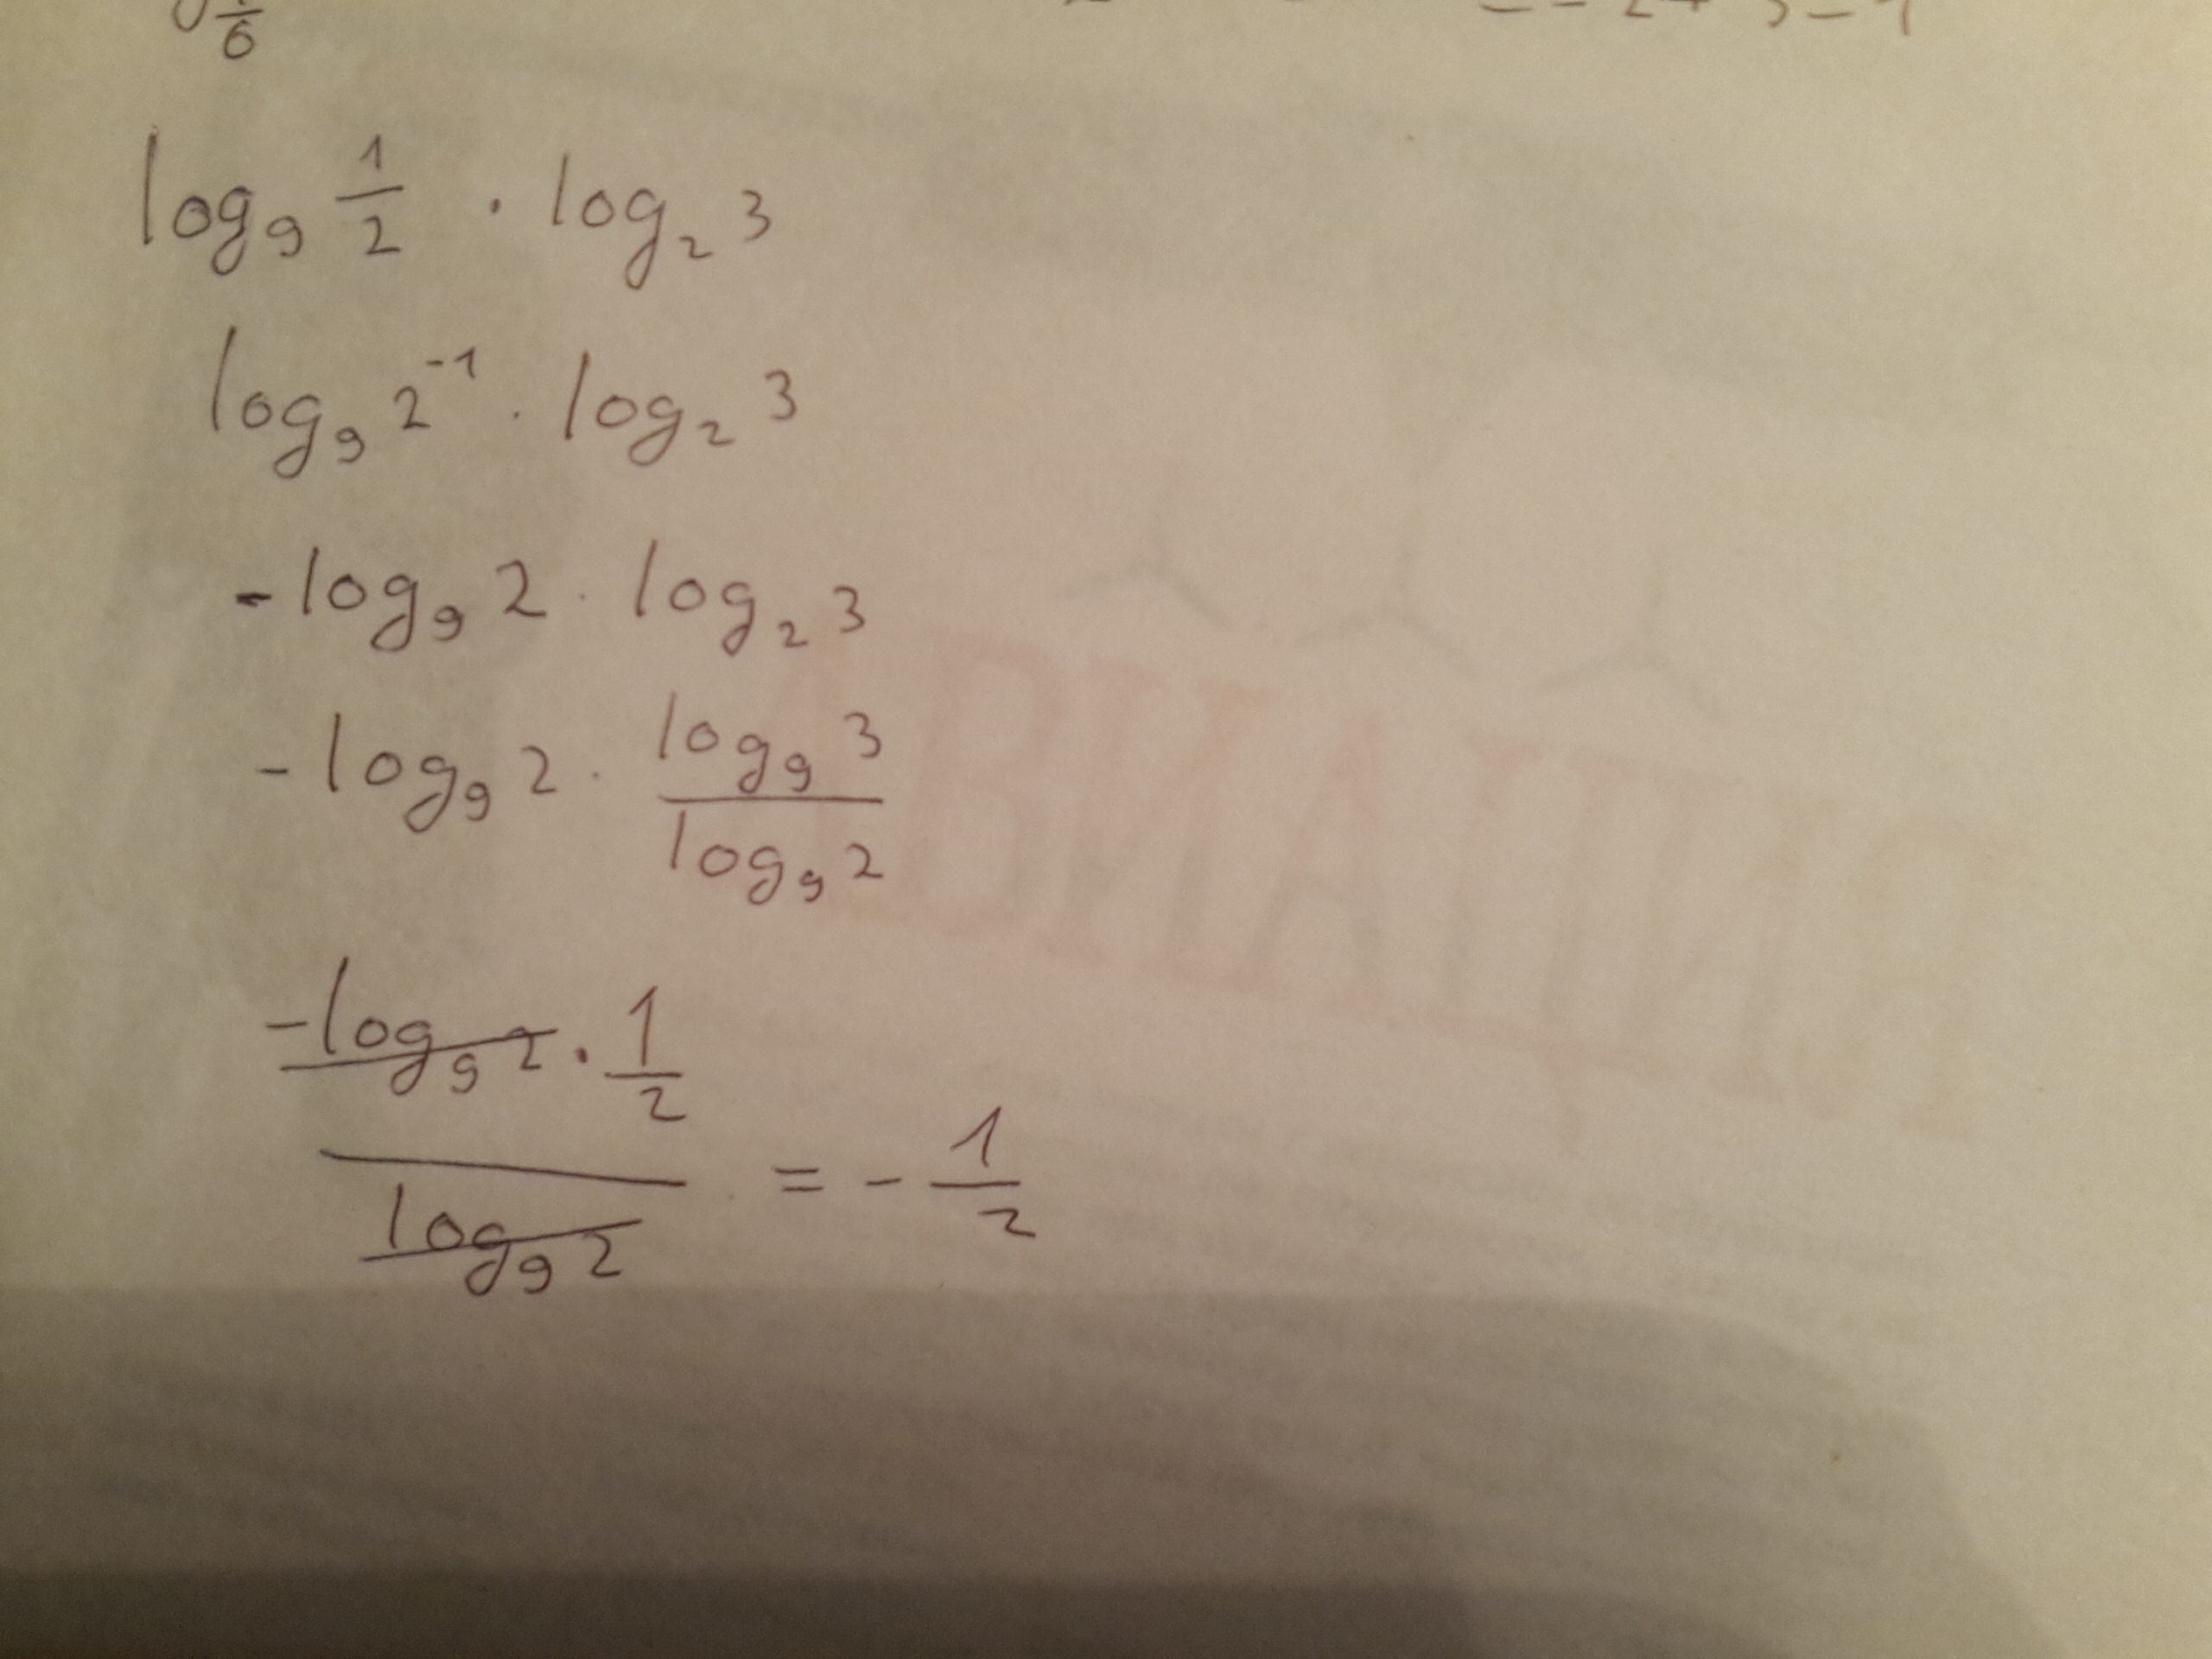 6
log₉ 1/2 · log₂ 3
log₉ 2⁻¹ · log₂ 3
-log₉ 2 · log₂ 3
-log₉ 2 · log₉ 3 / log₉ 2
-log₉ 2 · 1/2 / log₉ 2 = - 1/2